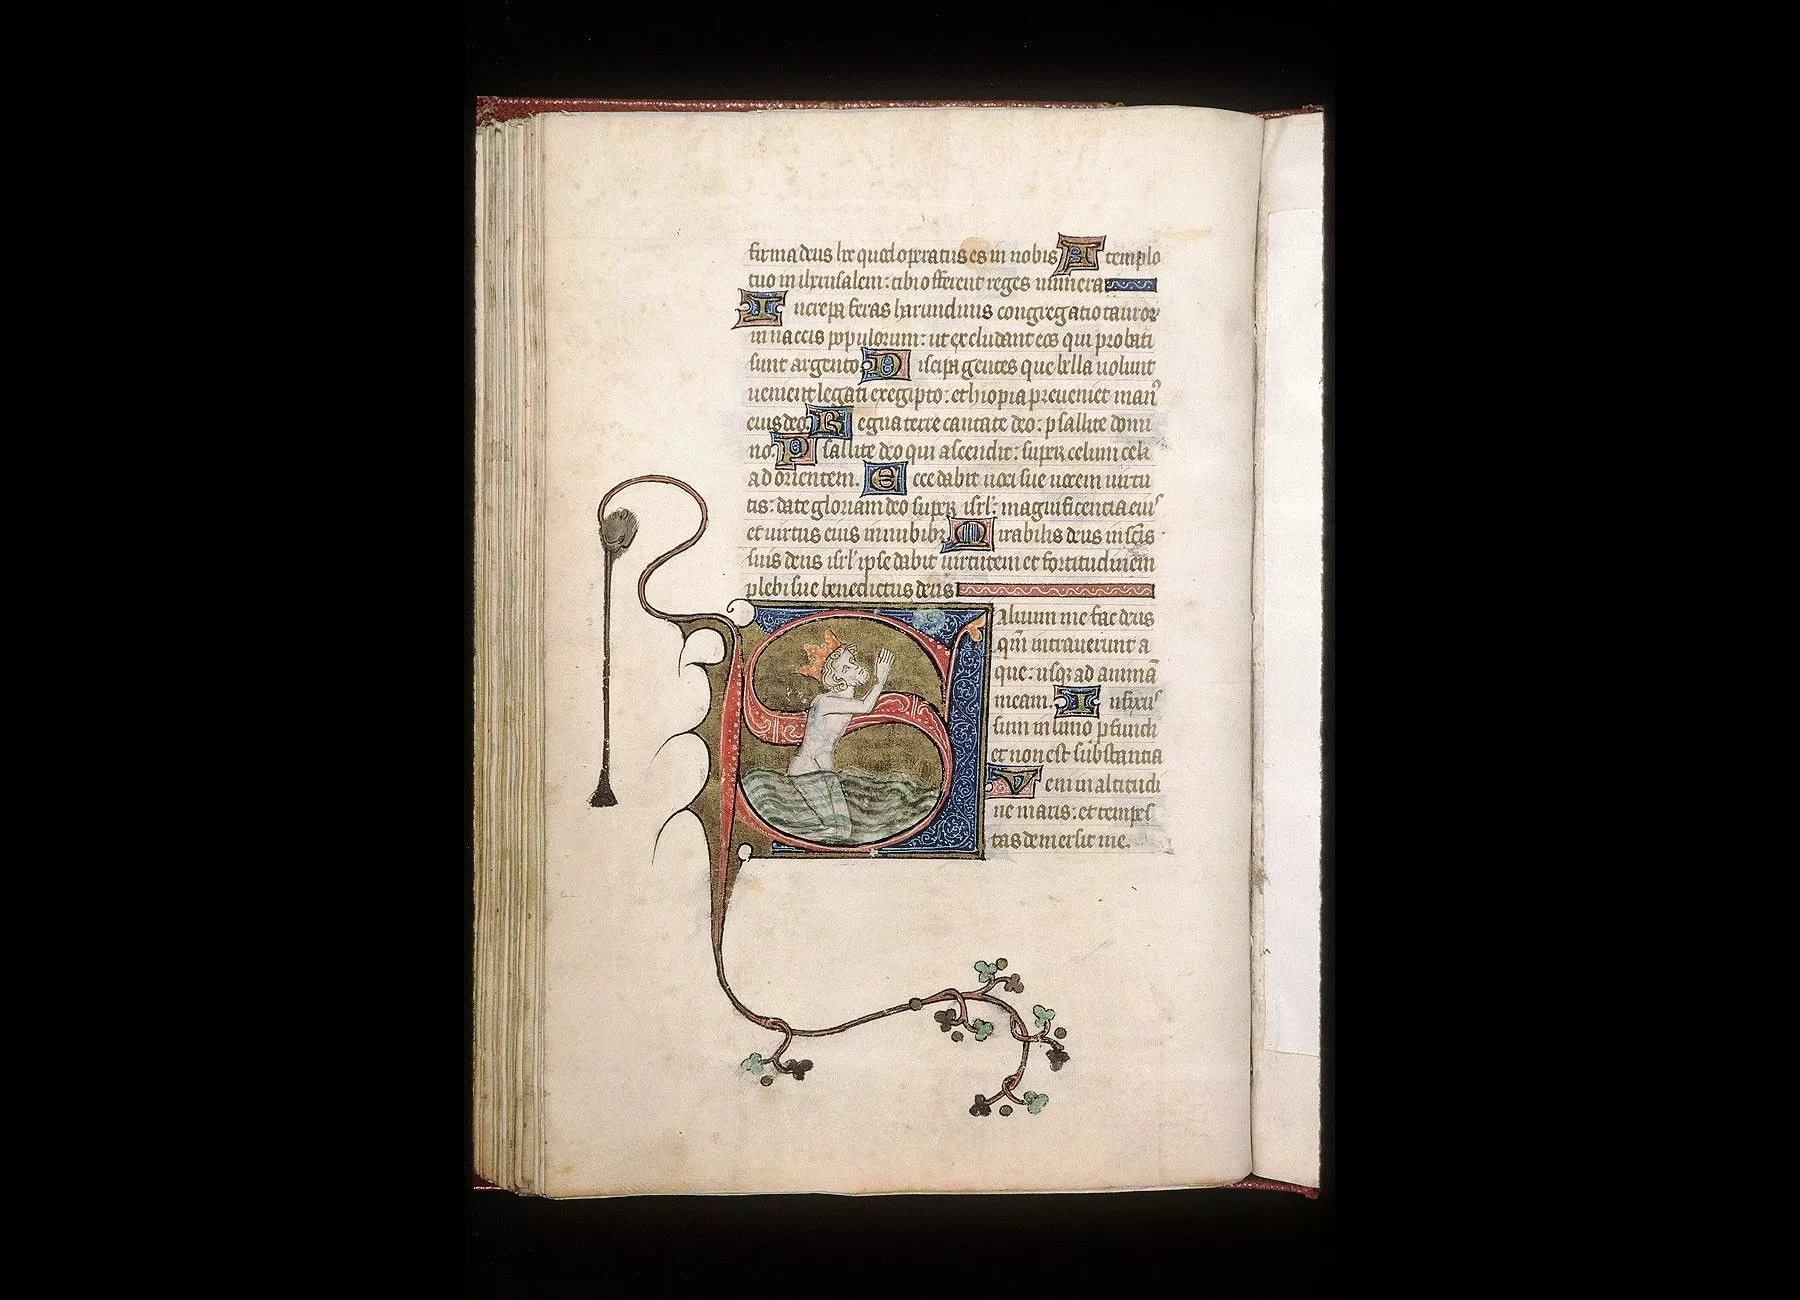 firma deus hec quod operatus es in nobis A templo
tuo in iherusalem : tibi offerent reges munera
Increpa feras harundinis congregatio tauror
in uaccis populorum : ut excludant eos qui probati
sunt argento Dissipa gentes que bella uolunt
uenient legati ex egipto : ethiopia preueniet man9
eius deo. Regna terre cantate deo : psallite domi
no. Psallite deo qui ascendit : super celum celi
ad orientem. Ecce dabit uoci sue uocem uirtu
tis : date gloriam deo super isrl' : magnificentia eius
et uirtus eius in nubib3 Mirabilis deus in scis
suis deus isrl' ipse dabit uirtutem et fortitudinem
plebi sue benedictus deus
Saluum me fac deus
qm intrauerunt a
que : usq3 ad animā
meam. Infixus
sum in limo profundi
et non est substantia
Veni in altitudi
ne maris : et tempes
tas demersit me.